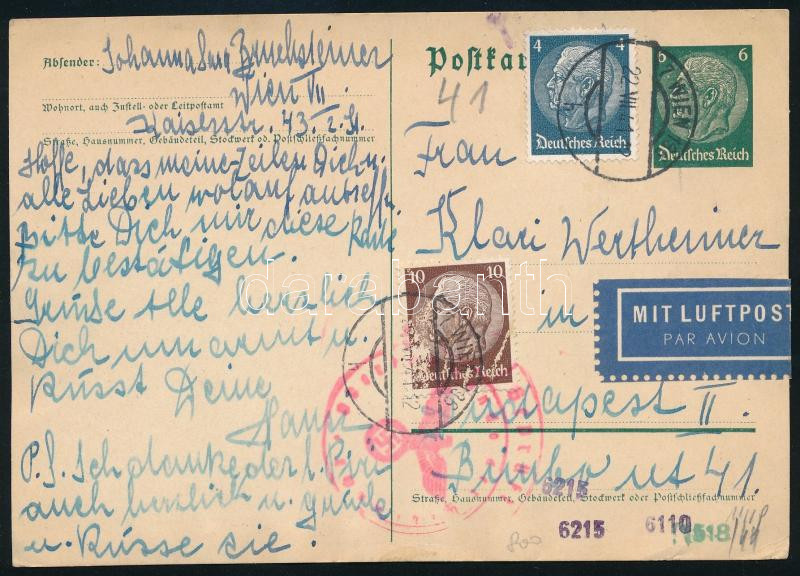 Absender: Johanna Sara Bruchsteiner
Wien VII
Wohnort, auch Zustell- oder Leitpostamt
Kaiserstr. 43. 2. St.
Straße, Hausnummer, Gebäudeteil, Stockwerk od. Postschließfachnummer
Hoffe, dass meine Zeilen Dich u.
alle Lieben wolauf antreffen
bitte Dich mir diese Karte
zu bestätigen.
Grüsse alle herzlich
Dich umarmt u.
küsst Deine
Hansi
P.S. Ich danke der l.
auch herzlich u. grüsse
u. küsse sie.
Postkar
41
4
Deutsches Reich
6
Deutsches Reich
WIEN
Frau
Klari Wertheimer
10 10
Deutsches Reich
WIEN
in
MIT LUFTPOST
PAR AVION
Budapest II.
Bimbo ut 41.
Straße, Hausnummer, Gebäudeteil, Stockwerk oder Postschließfachnummer
6215
6215
6110
1518
darabanth